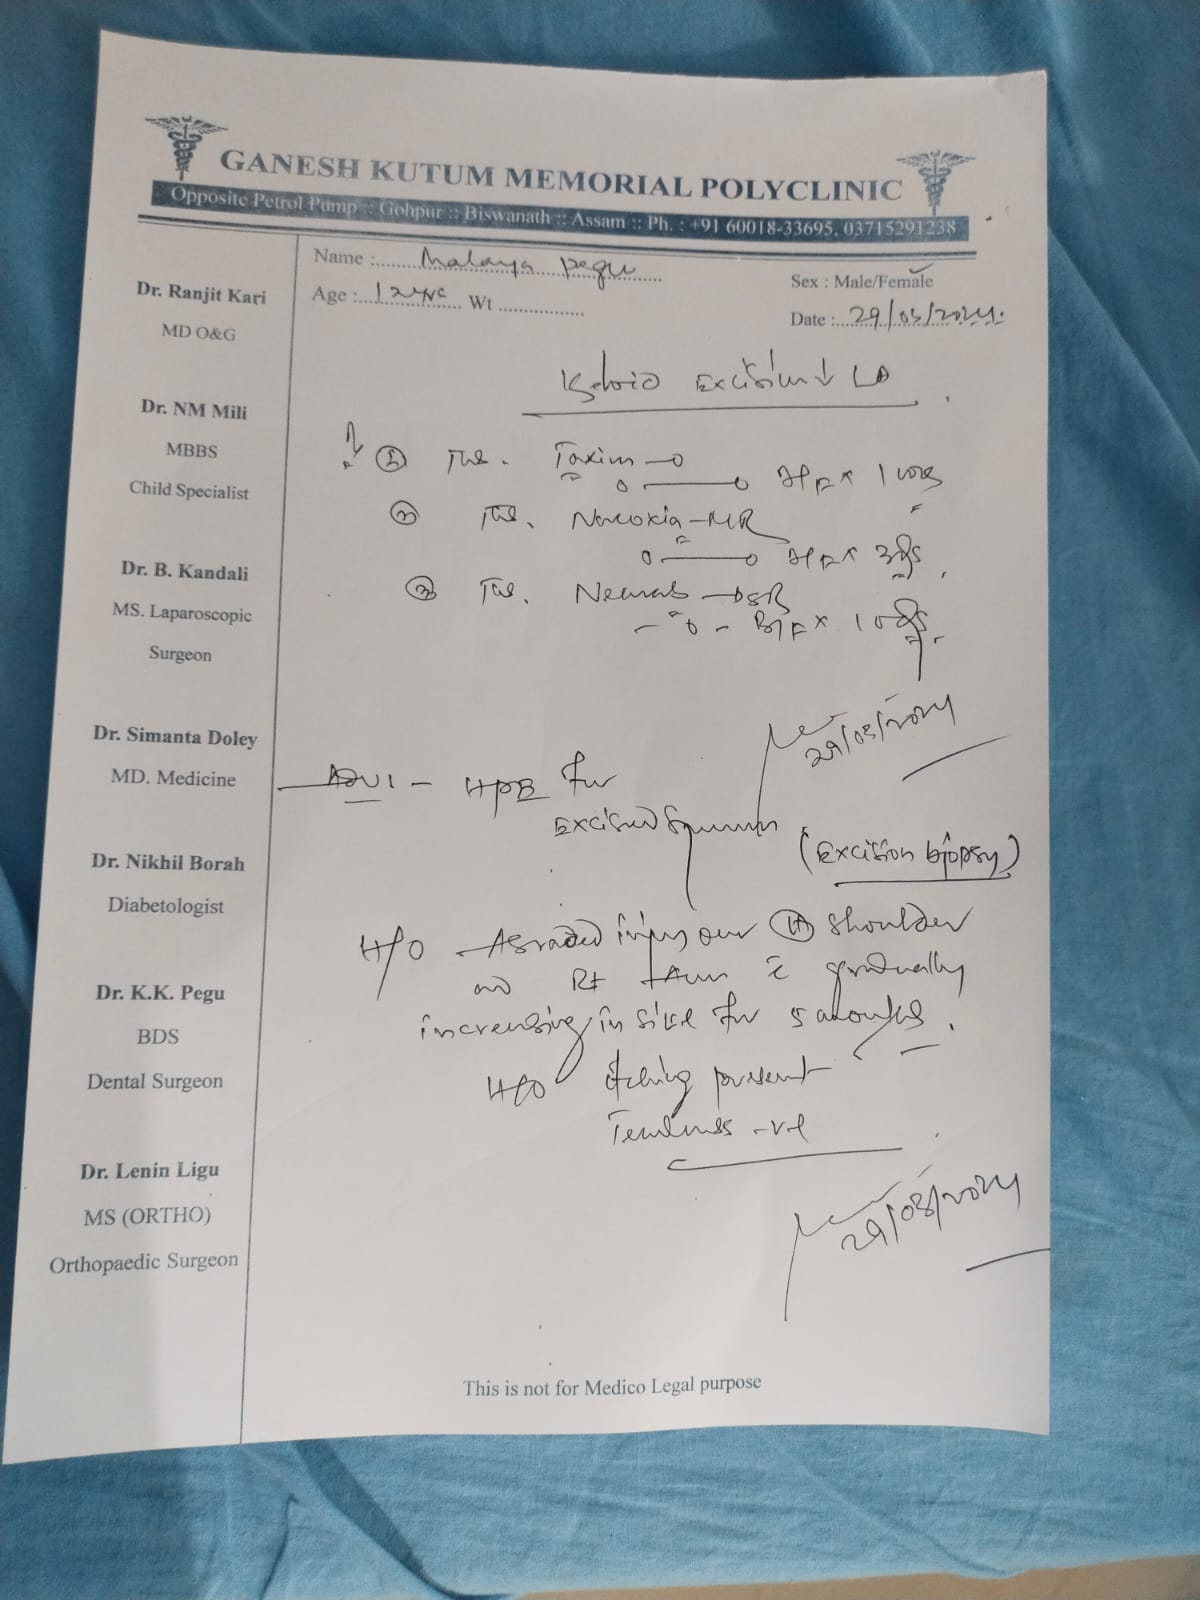 GANESH KUTUM MEMORIAL POLYCLINIC
Opposite Petrol Pump :: Gohpur :: Biswanath :: Assam :: Ph. : +91 60018-33695, 03715291238
Name : Malaya Pegu
Sex : Male/Female
Age : 12 yrs Wt
Date : 29/05/2024.
Dr. Ranjit Kari
MD O&G
Dr. NM Mili
MBBS
Child Specialist
Dr. B. Kandali
MS. Laparoscopic
Surgeon
Dr. Simanta Doley
MD. Medicine
Dr. Nikhil Borah
Diabetologist
Dr. K.K. Pegu
BDS
Dental Surgeon
Dr. Lenin Ligu
MS (ORTHO)
Orthopaedic Surgeon
Keloid Excision ↓ LA
Tab. Taxim-O
Tab. Nucoxia-MR
Tab. DSR
29/05/2024
ADVI - HPE for
Excised Specimen
(Excision biopsy)
H/O injury over Lt shoulder
Rt Arm c̄ gradually
increasing in size for 5 months.
H/O itching present
Tenderness -ve
29/05/2024
This is not for Medico Legal purpose